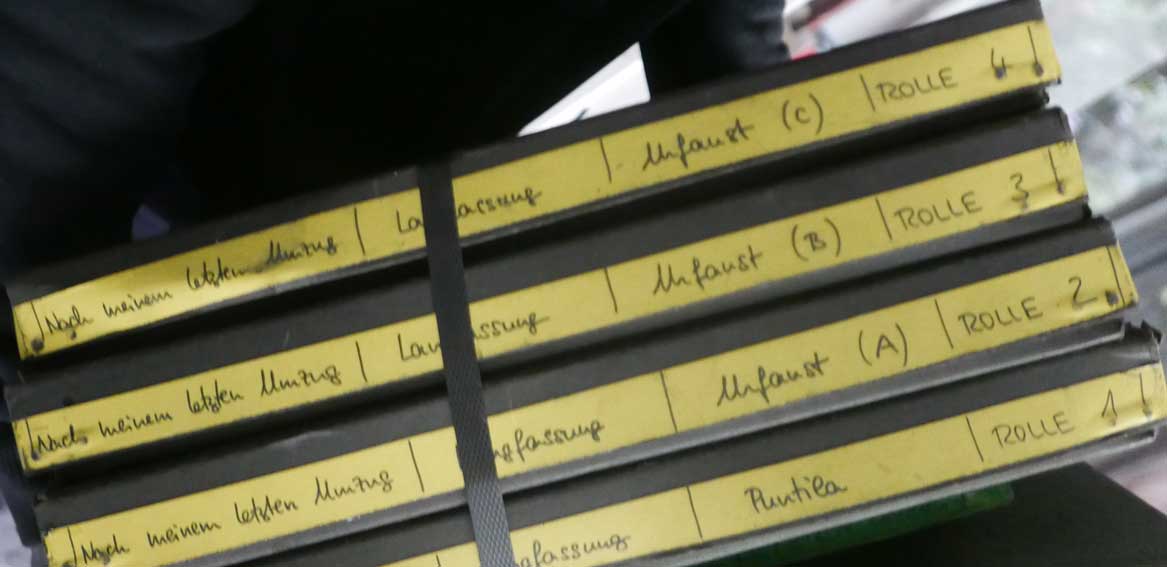 Nach meinem letzten Umzug | La assung | Urfaust (C) | ROLLE 4
Nach meinem letzten Umzug | Lan ssung | Urfaust (B) | ROLLE 3
Nach meinem letzten Umzug | ngfassung | Urfaust (A) | ROLLE 2
gfassung | Puntila | ROLLE 1